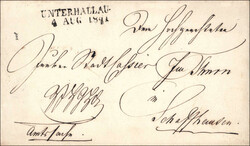 UNTERHALLAU
4 AUG 1841
Dem Hochgeachteten
Herrn Stadtcassier Im Thurn
in
Schaffhausen
Amtsache.